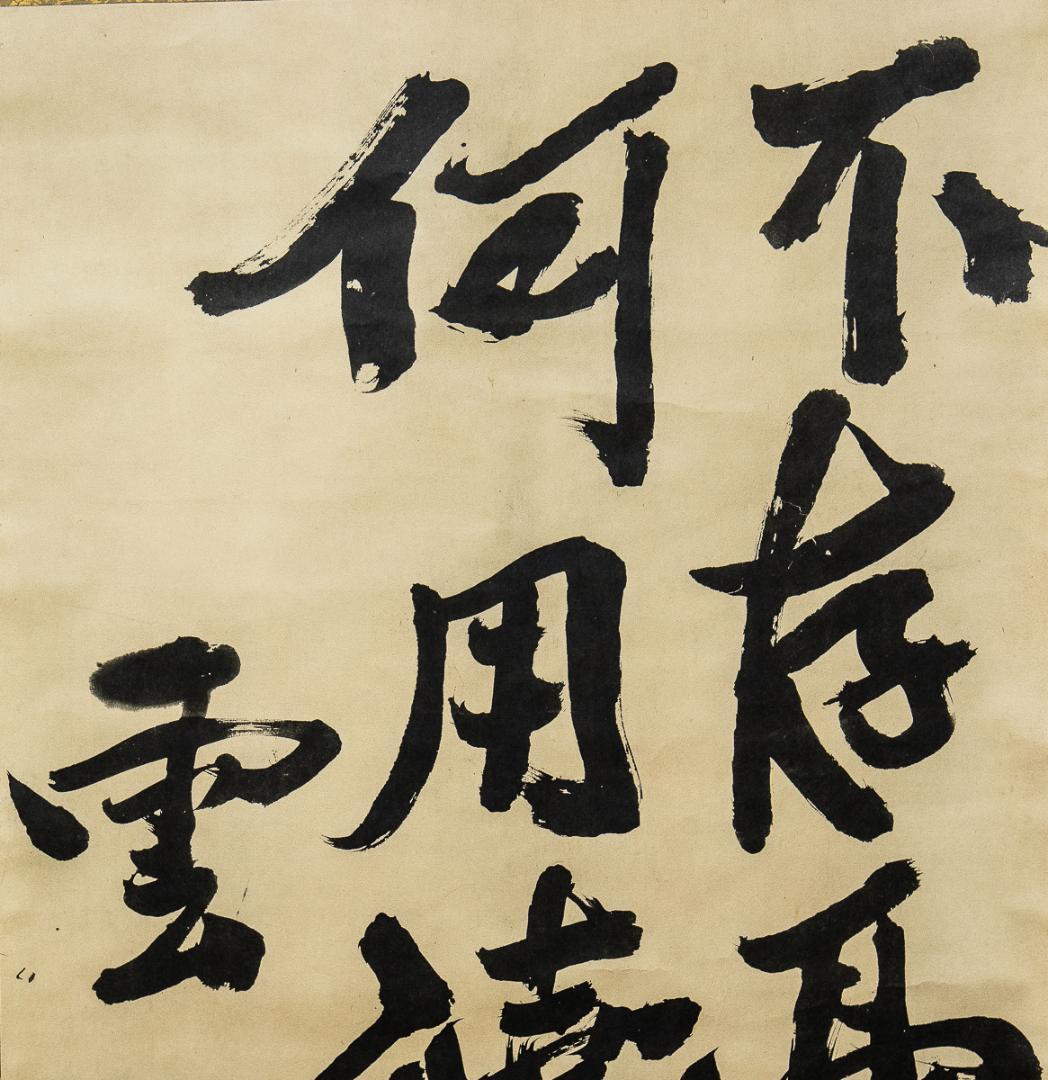 不存
何用
雲